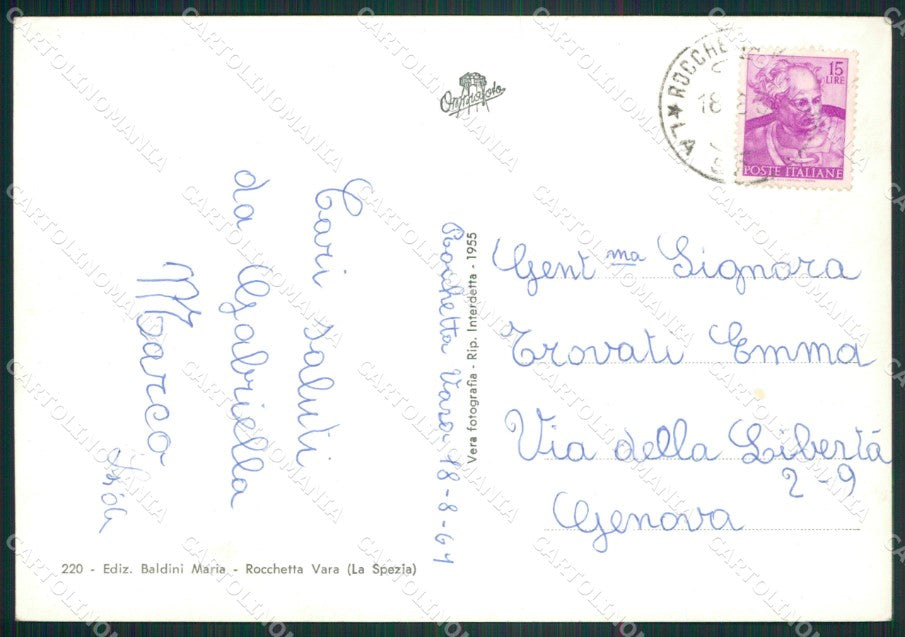 Cari saluti
da Gabriella
Marco
Rocchetta Vara 18-8-64
Vera fotografia - Rip. Interdetta - 1955
Omniafoto
ROCCHE
LA
18
15
LIRE
POSTE ITALIANE
Gent ma Signora
Trovati Emma
Via della Libertà
2-9
Genova
220 - Ediz. Baldini Maria - Rocchetta Vara (La Spezia)
CARTOLINOMANIA